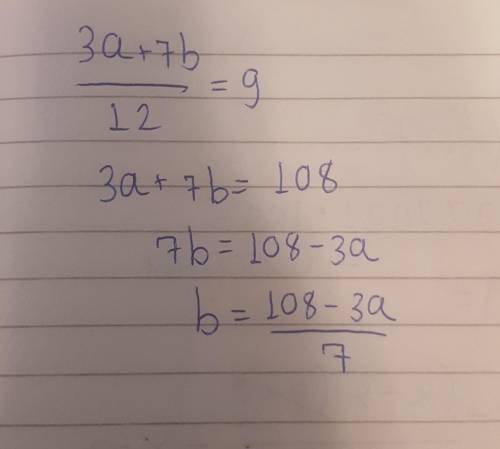 3a+7b
/12 = 9
3a+ 7b= 108
7b= 108-3a
b = 108-3a
/7